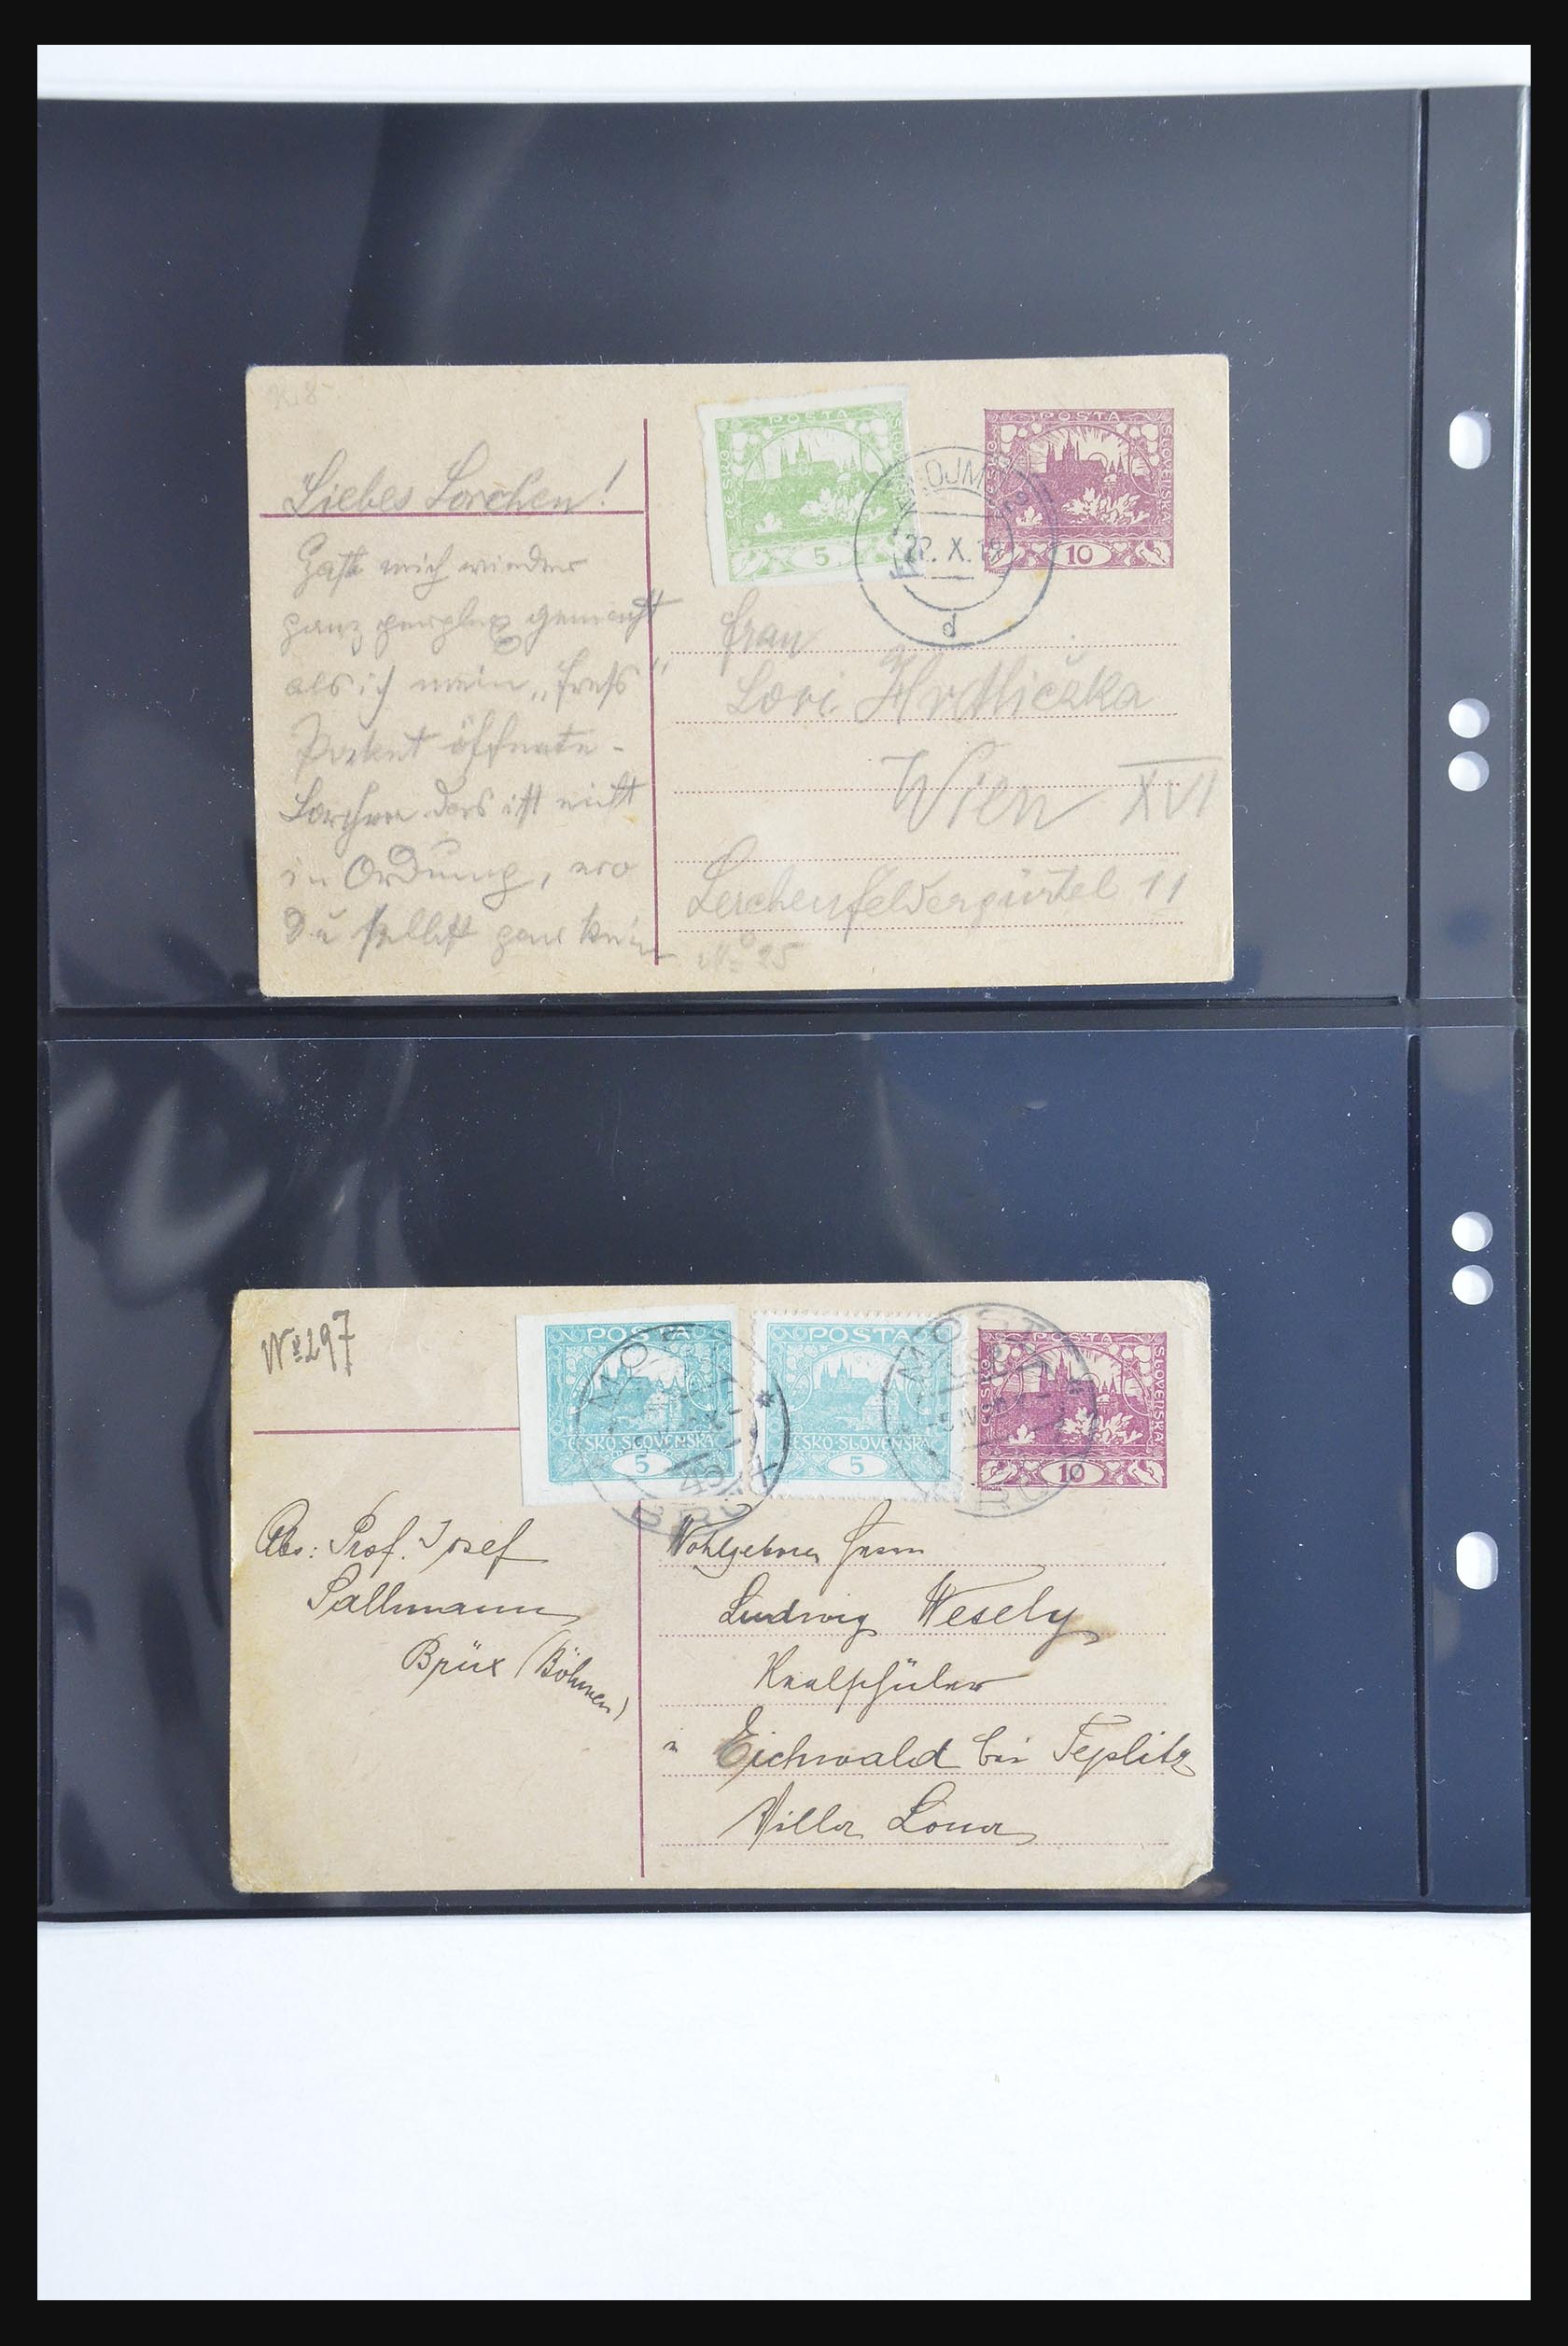 K.8-
POSTA
ČESKO
SLOVENSKÁ
5
POSTA
ČESKO
SLOVENSKÁ
10
22. X. 19
d
Liebes Lorchen!
Hast mich wieder
ganz perplex gemacht
als ich mein „Fress"
Packet öffnete -
Lorchen das ist nicht
in Ordnung, wo
Du selbst gar kein
Frau
Lori Hrdliczka
Wien XVI
Lerchenfeldergürtel 11
No 25
No 297
POSTA
ČESKO-SLOVENSKÁ
5
POSTA
ČESKO-SLOVENSKÁ
5
POSTA
ČESKO
SLOVENSKÁ
10
MOST
BRÜX
MOST
BRÜX
Abs: Prof. Josef
Sallmann
Brüx (Böhmen)
Wohlgeboren Herrn
Ludwig Wesely
Realschüler
in Eichwald bei Teplitz
Villa Lona